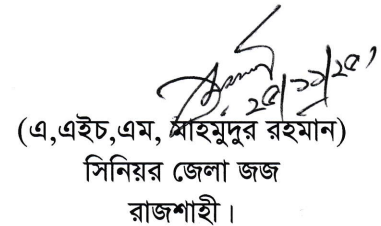 ২৫/১১/২৫
(এ,এইচ,এম, মাহমুদুর রহমান)
সিনিয়র জেলা জজ
রাজশাহী।